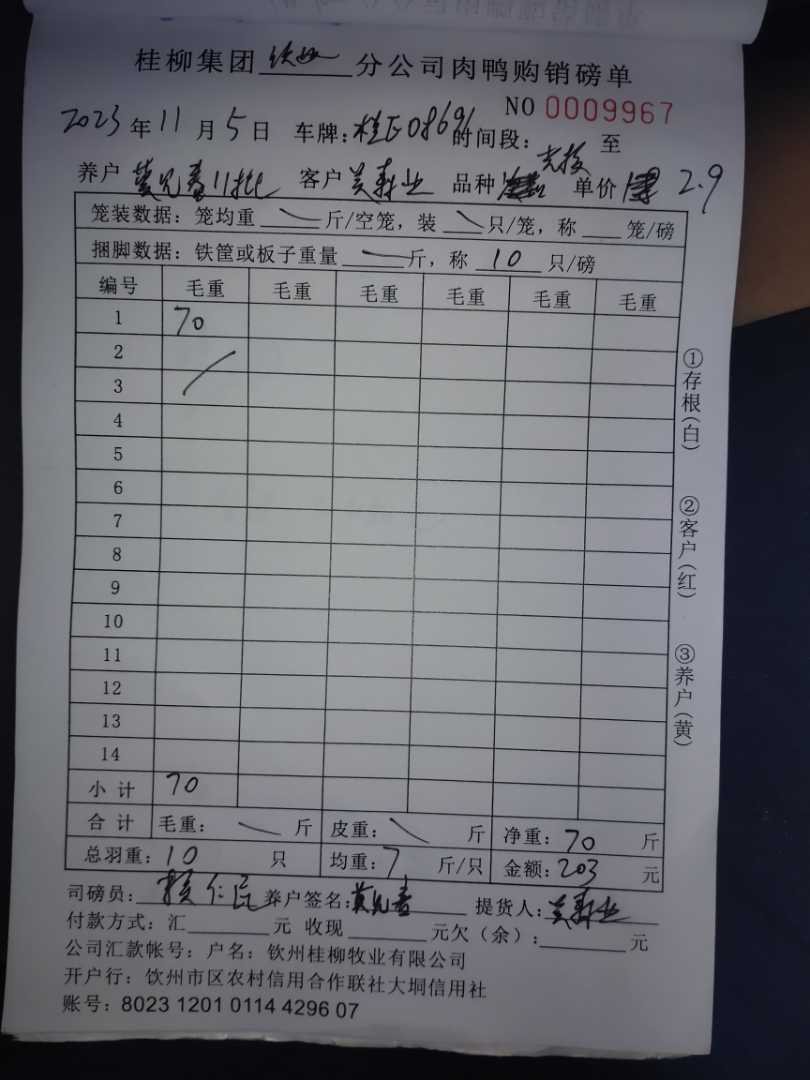 桂柳集团 钦州 分公司肉鸭购销磅单
NO 0009967
2023 年 11 月 5 日 车牌: 桂E08691 时间段: 至
养户 11批 客户 业 品种 单价 2.9
笼装数据: 笼均重 斤/空笼, 装 只/笼, 称 笼/磅
捆脚数据: 铁筐或板子重量 斤, 称 10 只/磅
编号 毛重 毛重 毛重 毛重 毛重 毛重
1 70
2
3
4
5
6
7
8
9
10
11
12
13
14
小计 70
合计 毛重: 斤 皮重: 斤 净重: 70 斤
总羽重: 10 只 均重: 7 斤/只 金额: 203 元
司磅员: 仁 养户签名: 提货人: 业
付款方式: 汇 元 收现 元欠(余): 元
公司汇款帐号: 户名: 钦州桂柳牧业有限公司
开户行: 饮州市区农村信用合作联社大垌信用社
账号: 8023 1201 0114 4296 07
①存根(白)
②客户(红)
③养户(黄)